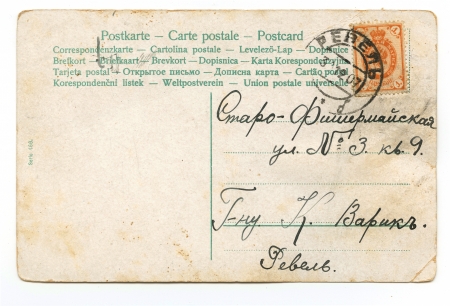 Postkarte – Carte postale – Postcard
Correspondenzkarte – Cartolina postale – Levelező-Lap – Dopisnice
Brefkort – Briefkaart – Brevkort – Dopisnica – Karta Korespondencyjna
Tarjeta postal – Открытое письмо – Дописна карта – Cartão postal
Korespondenční listek – Weltpostverein – Union postale universelle
РЕВЕЛЬ
Старо-Фишермайская
ул. № 3. кв. 9.
Г-ну К. Варикъ.
Ревель.